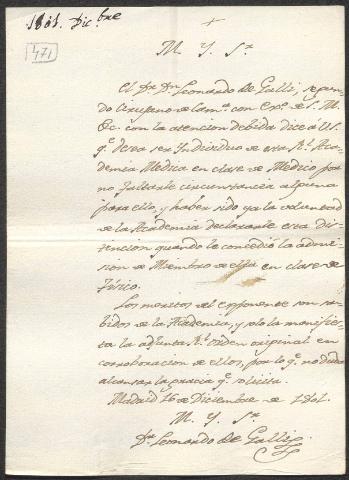 1801. Dic.bre
471
+
M. Y. S.r
El D.r D.n Leonardo de Galli, segun-
do Cirujano de Cam.a con exer.o de S. M.
&c. con la atencion debida dice á V.S.
q.e desea ser Individuo de esa R.l Aca-
demia Medica en clase de Medico por
no faltarle circunstancia alguna
para ello, y haber sido ya la voluntad
de la Academia declararle esta dis-
tincion quando le concedió la admi-
sion de Miembro de ella en clase de
Fisico.
Los meritos del exponente son sa-
bidos de la Academia, y solo la manifies-
ta la adjunta R.l orden original en
corroboracion de ellos, por lo q.e no duda
alcanzar la gracia q.e solicita.
Madrid 16 de Diciembre de 1801.
M. Y. S.r
D.r Leonardo de Galli